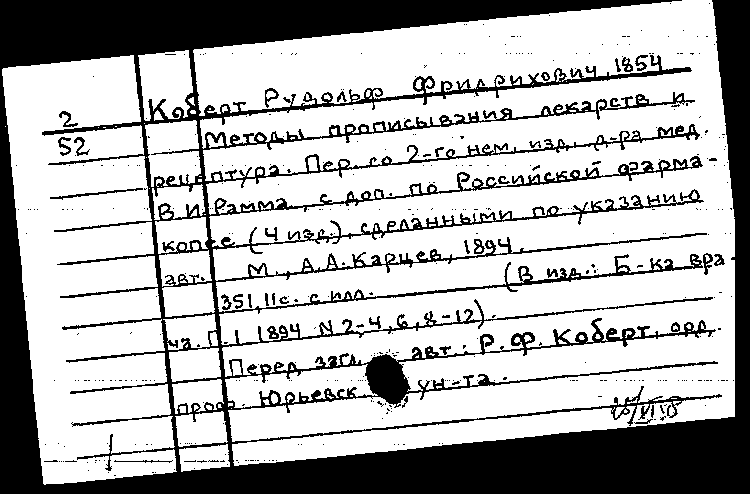 2
52
Коберт Рудольф Фридрихович, 1854
Методы прописывания лекарств и
рецептура. Пер. со 2-го нем. изд. д-ра мед.
В.И. Рамма, с доп. по Российской фарма-
копее (4 изд.), сделанными по указанию
авт. М., А.А. Карцев, 1894.
351, 11с. с илл. (В изд.: Б-ка вра-
ча. Г. I. 1894 N 2-4, 6, 8-12).
Перед загл. авт.: Р.Ф. Коберт, орд.
проф. Юрьевск ун-та.